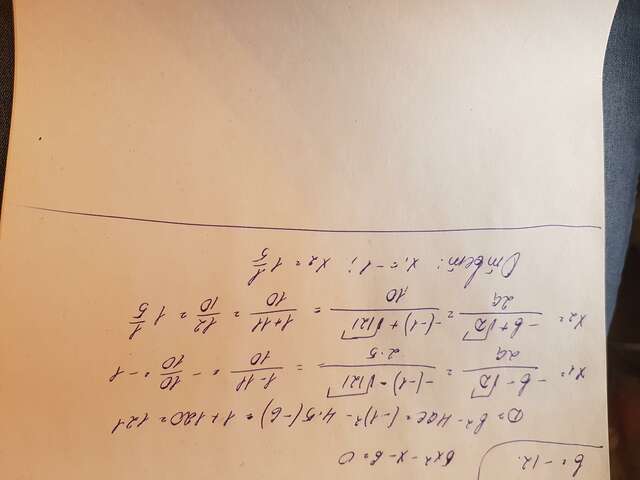 b = -12. 5x² - x - 6 = 0
D = b² - 4ac = (-1)² - 4·5(-6) = 1 + 120 = 121
x₁ = (-b - √D)/2a = (-(-1) - √121)/2·5 = (1 - 11)/10 = -10/10 = -1
x₂ = (-b + √D)/2a = (-(-1) + √121)/10 = (1 + 11)/10 = 12/10 = 1 1/5
Ответ: x₁ = -1; x₂ = 1 1/5